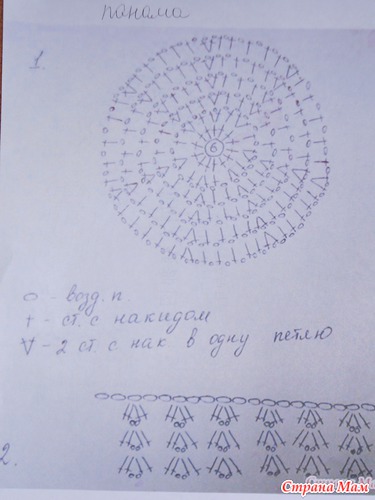 панама
1.
6
о - возд. п.
† - ст. с накидом
V - 2 ст. с нак в одну петлю
2.
Страна Мам